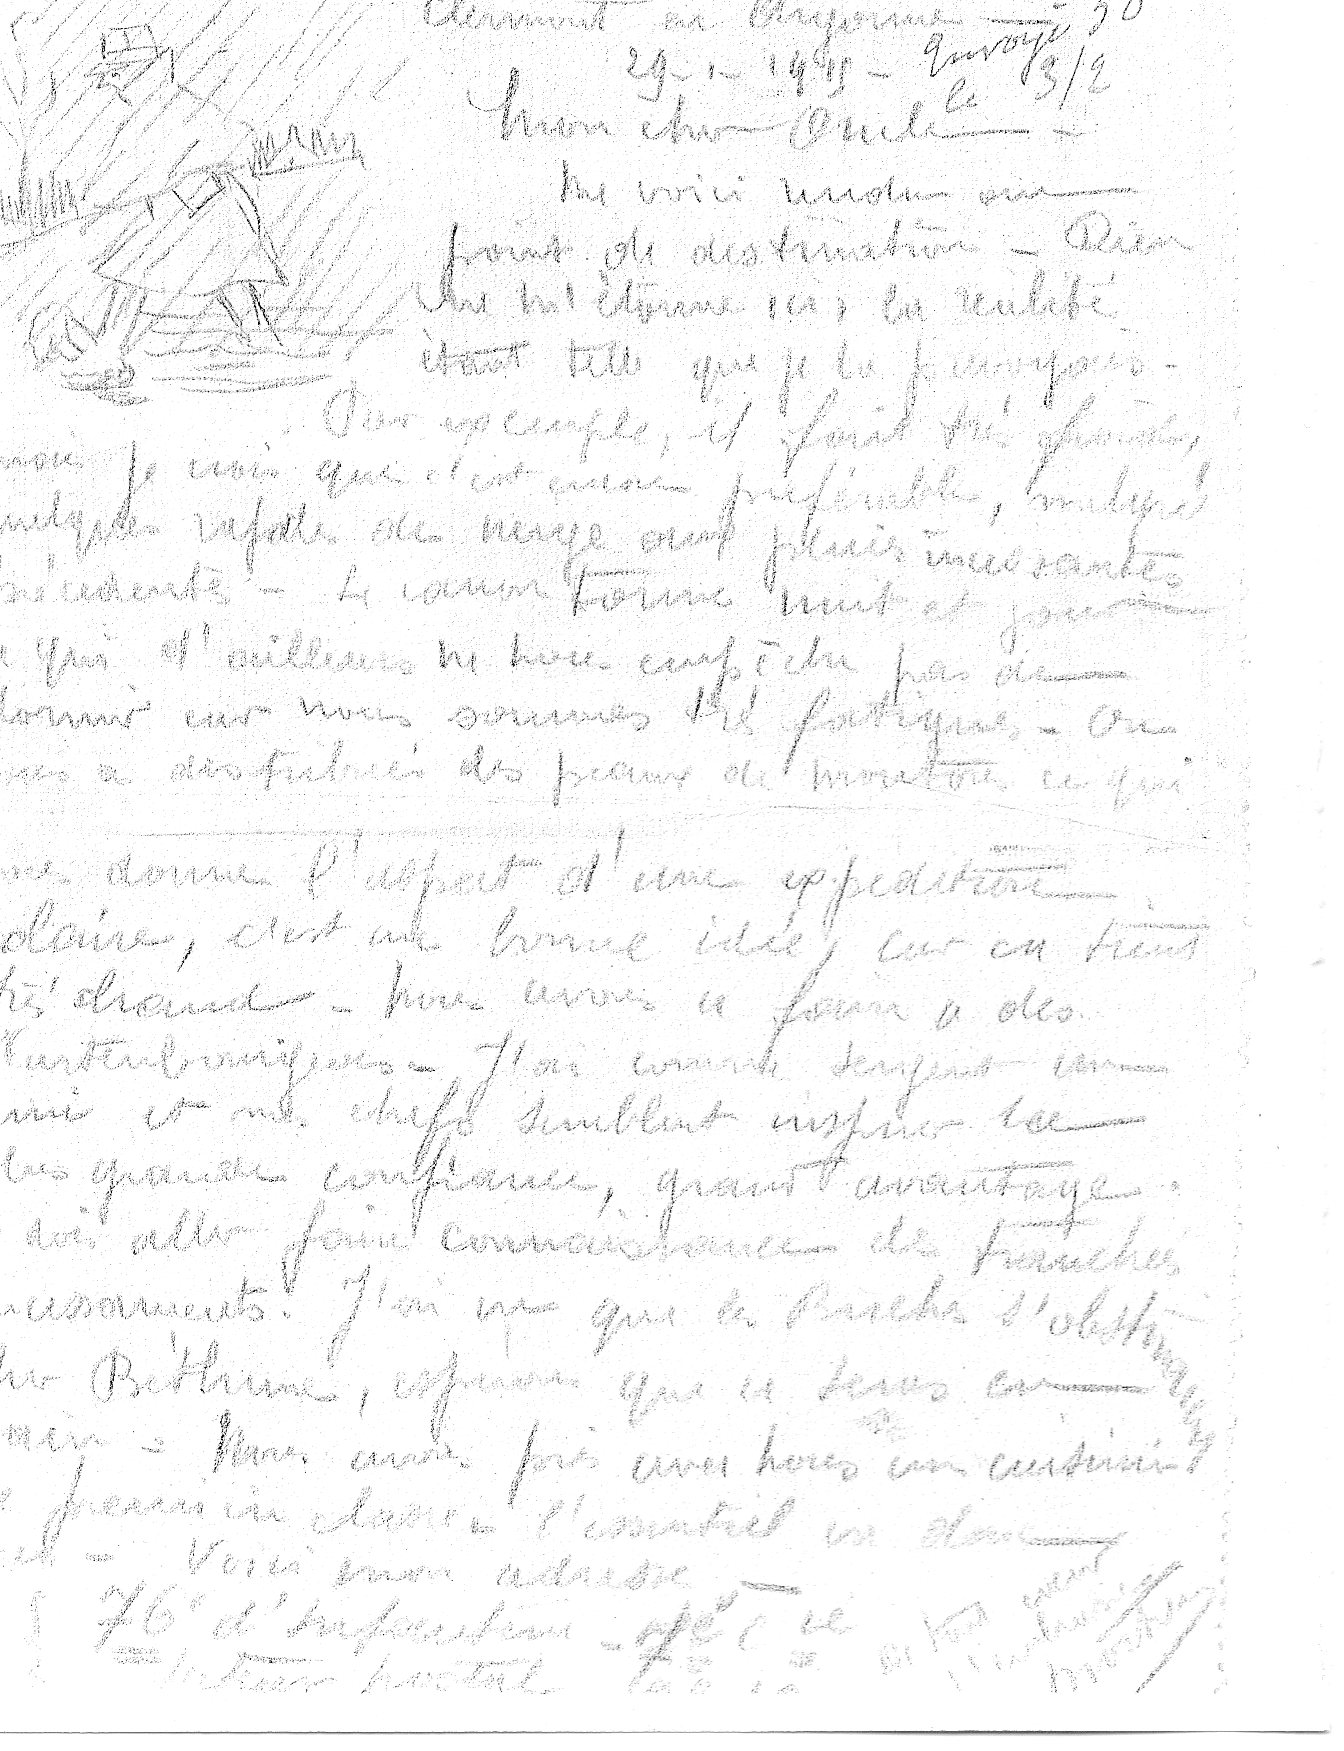 Clermont en Argonne
29-1-1915 - envoyé le 3/2
Mon cher Oncle -
Me voici rendu au
point de destination - Rien
ne m'étonne ici, la réalité
étant telle que je la prévoyais -
Par exemple, il fait très froid,
mais je crois que c'est encore préférable, malgré
quelques rafales de neige aux pluies incessantes
précédentes - Le canon tonne nuit et jour
ce qui d'ailleurs ne nous empêche pas de
dormir car nous sommes très fatigués - On
nous a distribué des peaux de moutons ce qui
nous donne l'aspect d'une expédition
polaire, c'est une bonne idée, car on tient
très chaud - Nous avons à faire à des
Wurtembourgeois - J'ai comme sergent un
ami et mes chefs semblent inspirer la
plus grande confiance, grand avantage.
Je vais aller faire connaissance des tranchées
incessamment. J'ai vu que les Boches s'obstinent
sur Béthune, espérons que ce sera en
vain - Nous avons pris avec nous un cuisinier
de première classe, l'essentiel en
Voici mon adresse -
76e d'Infanterie - Cie
Secteur postal